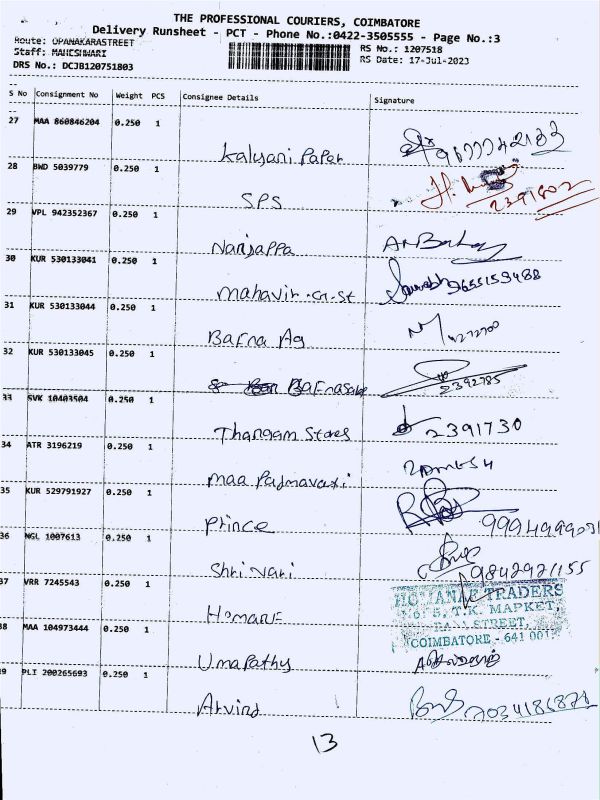 THE PROFESSIONAL COURIERS, COIMBATORE
Delivery Runsheet - PCT - Phone No.:0422-3505555 - Page No.:3
Route: OPANAKARASTREET RS No.: 1207518
Staff: MAHESHWARI RS Date: 17-Jul-2023
DRS No.: DCJB120751803
S No Consignment No Weight PCS Consignee Details Signature
27 MAA 860846204 0.250 1
Kalyani Paper
28 BWD 5039779 0.250 1
SPS 2391802
29 VPL 942352367 0.250 1
Nanjappa
30 KUR 530133041 0.250 1
Mahavir .G. St 9655159488
31 KUR 530133044 0.250 1
Bafna Ag
32 KUR 530133045 0.250 1
2392785
33 SVK 10403504 0.250 1
Thangam Stores 2391730
34 ATR 3196219 0.250 1
Maa Padmavati
35 KUR 529791927 0.250 1
Prince
36 NGL 1007613 0.250 1
Shri Vari
37 VRR 7245543 0.250 1
TRADERS
T.K. MARKET,
STREET,
COIMBATORE - 641 001
38 MAA 104973444 0.250 1
Umapathy
39 PLI 200265693 0.250 1
Arvind
13